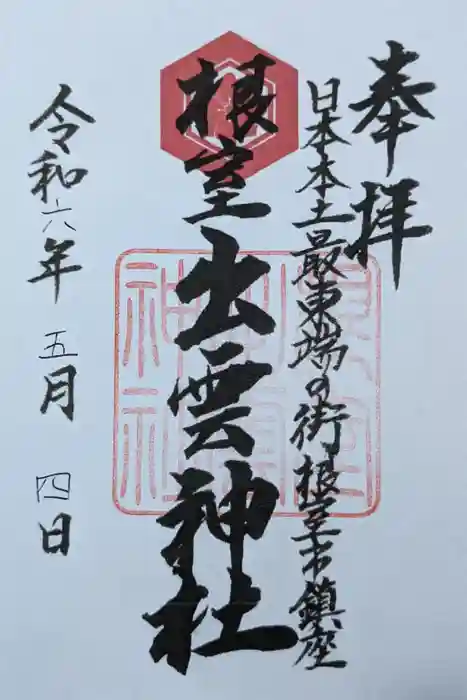 奉拝
日本本土最東端の街根室市鎮座
根室出雲神社
令和六年 五月 四日